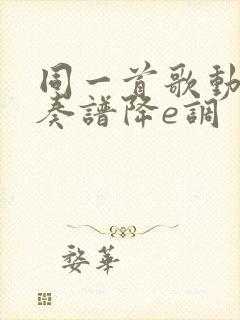 同一首歌動
奏譜降e調
婺華